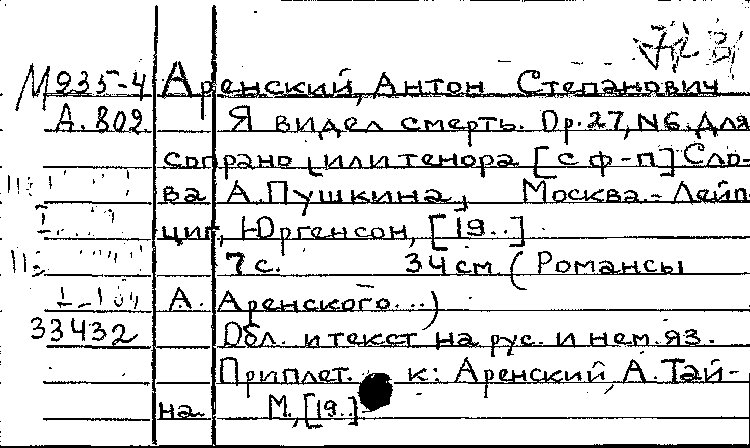 М935-4 Аренский, Антон Степанович
А.802 Я видел смерть. Op.27, N6. Для
сопрано [или тенора [с ф-п] Сло-
ва А.Пушкина, Москва.- Лейп-
циг, Юргенсон, [19..]
7 с. 34 см. (Романсы
А. Аренского...)
33432 Обл. и текст на рус. и нем. яз.
Приплет. к: Аренский, А. Тай-
на М., [19..]